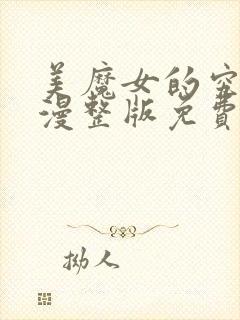 美魔女的穷
漫整版免费
拗人